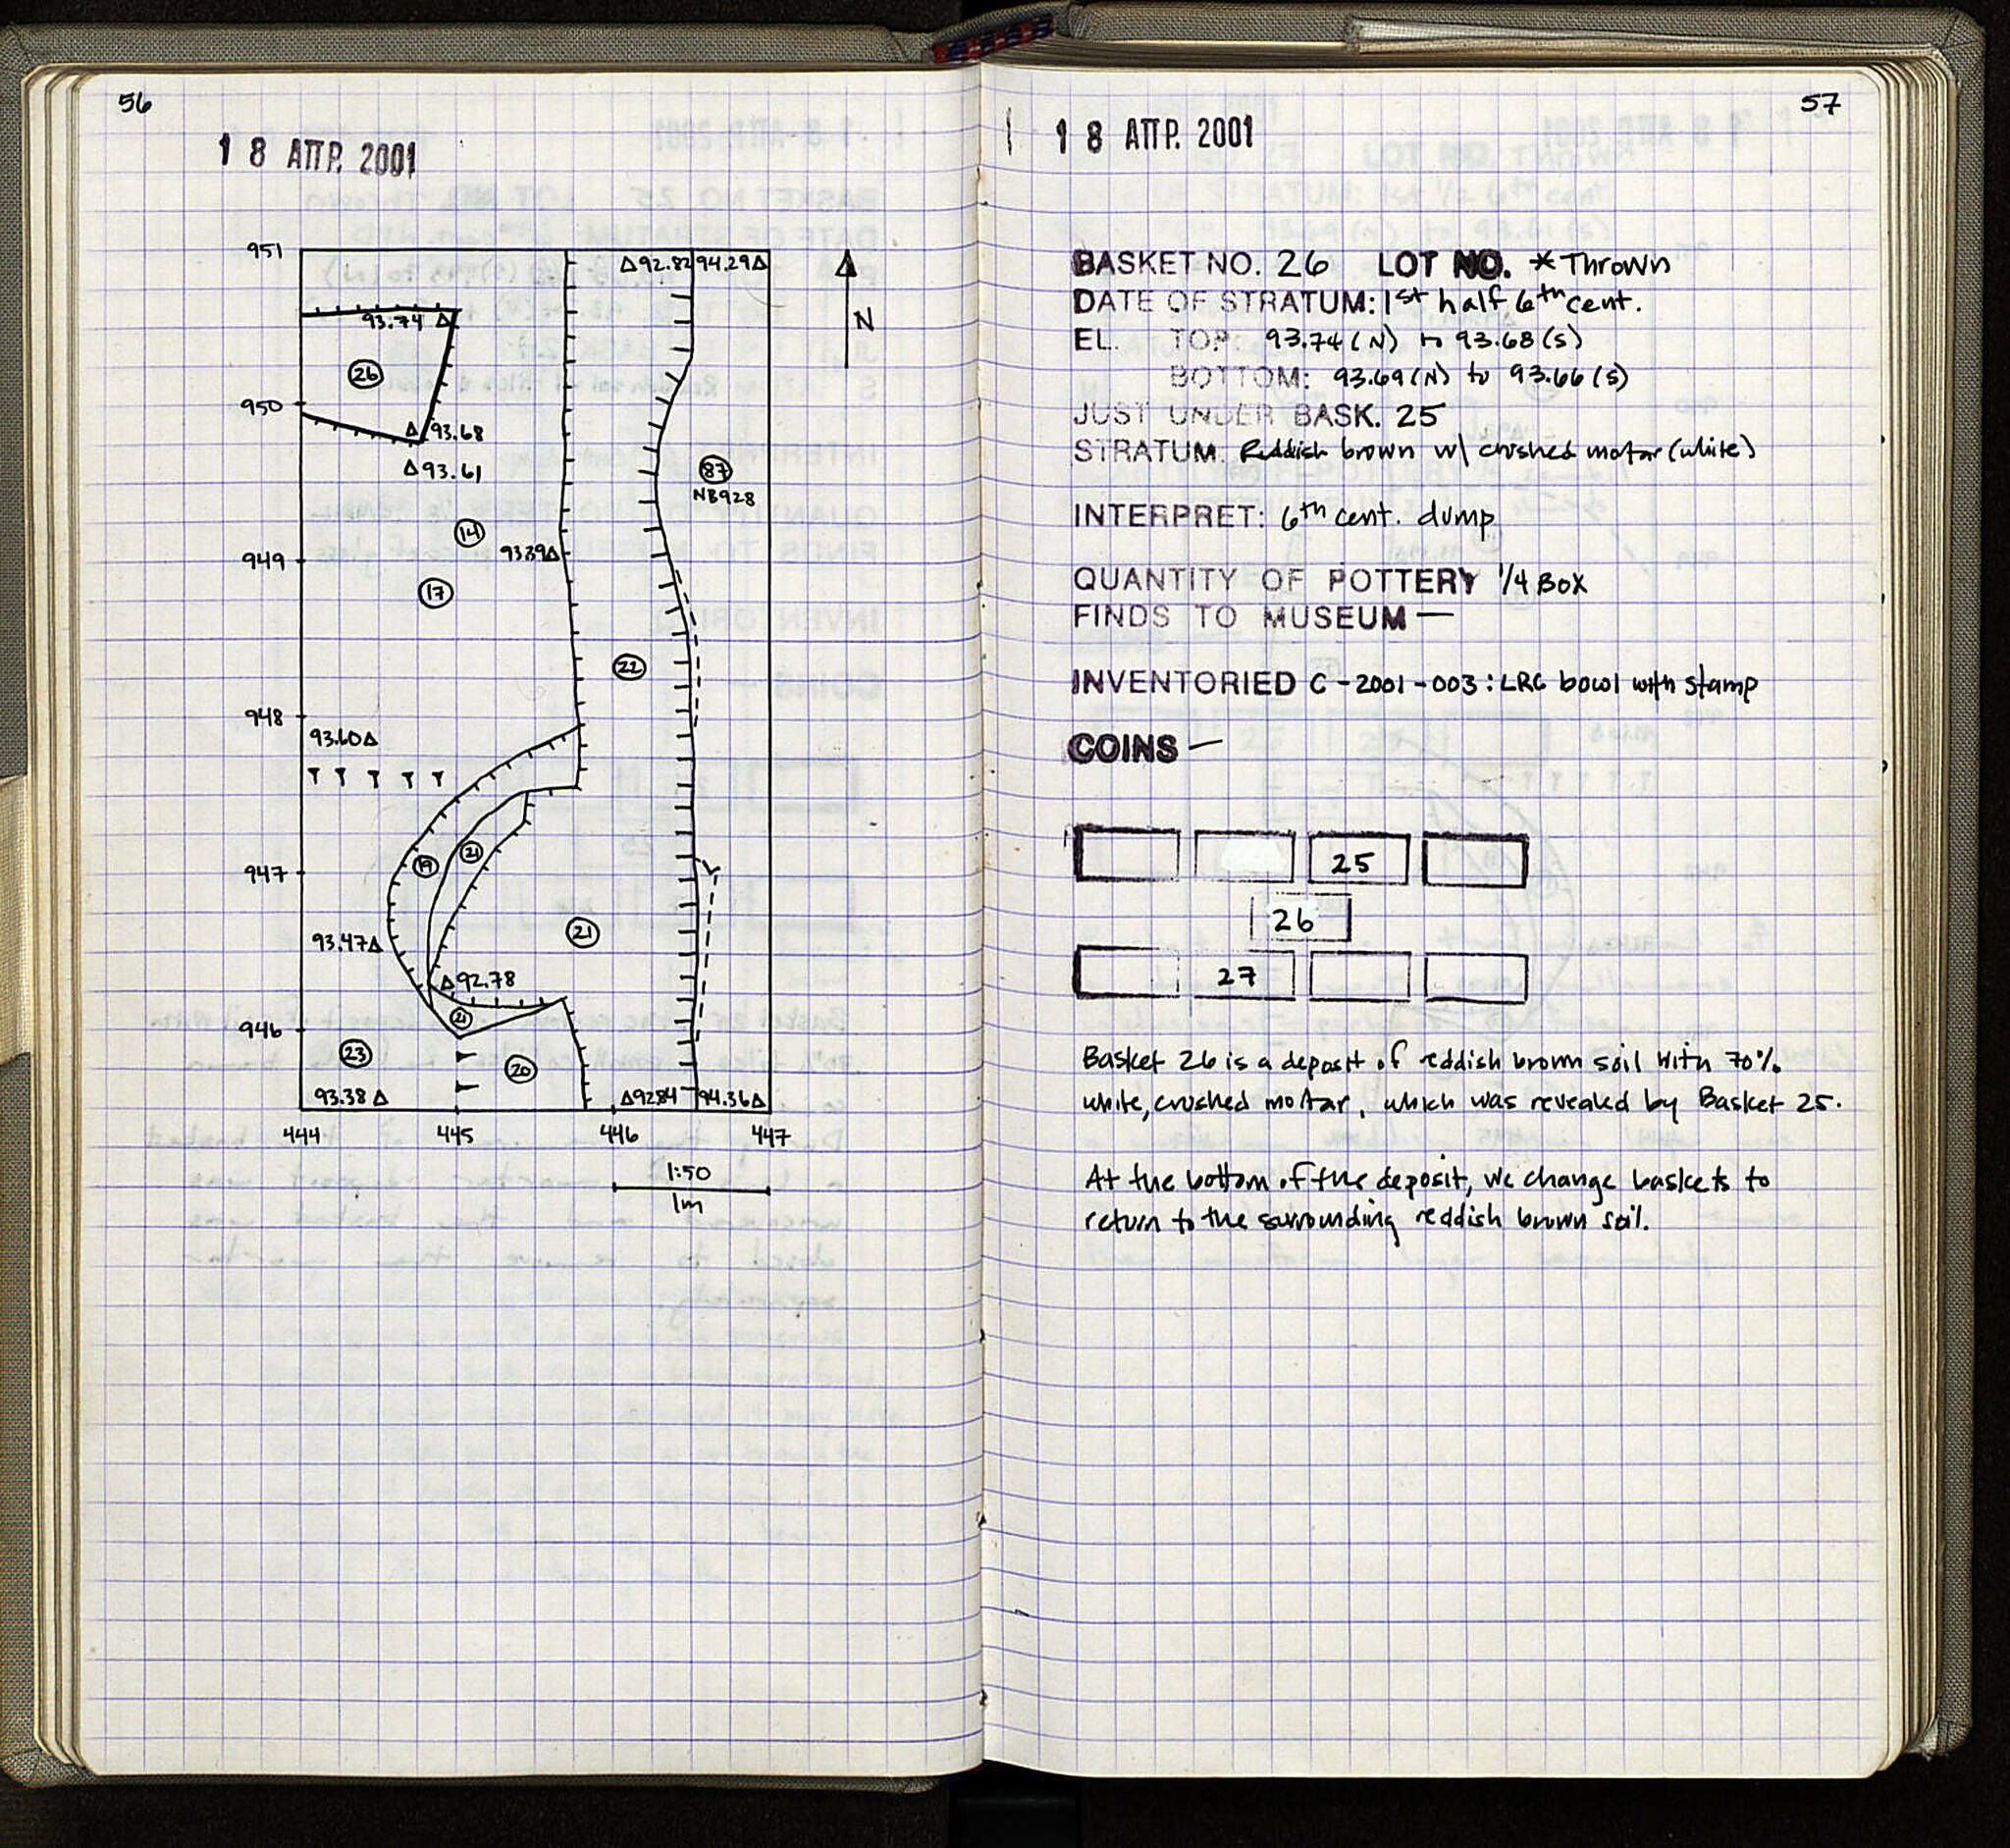 56
18 ΑΠΡ. 2001
951
△92.82 94.29△
93.74 △
N
26
950
△ 93.68
△93.61
87
NB928
14
949
93.39△
17
22
948
93.60△
19
21
947
21
93.47△
△92.78
21
946
23
20
93.38 △
△92.84 94.36△
444 445 446 447
1:50
1m
57
18 ΑΠΡ. 2001
BASKET NO. 26 LOT NO. *Thrown
DATE OF STRATUM: 1st half 6th cent.
EL. TOP: 93.74 (N) to 93.68 (S)
BOTTOM: 93.69 (N) to 93.66 (S)
JUST UNDER BASK. 25
STRATUM: Reddish brown w/ crushed motar (white)
INTERPRET: 6th cent. dump
QUANTITY OF POTTERY 1/4 BOX
FINDS TO MUSEUM —
INVENTORIED C-2001-003: LRC bowl with stamp
COINS —
25
26
27
Basket 26 is a deposit of reddish brown soil with 70%
white, crushed mortar, which was revealed by Basket 25.
At the bottom of the deposit, we change baskets to
return to the surrounding reddish brown soil.